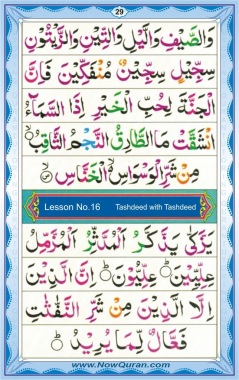 29
وَالصَّيْفِ وَالَّيْلِ وَالتِّيْنِ وَالزَّيْتُوْنِ
سِجِّيْلٍ سِجِّيْنٌ مُنْفَكِّيْنَ فَاِنَّ
الْجَنَّةَ لِحُبِّ الْخَيْرِ اِذَا السَّمَآءُ
انْشَقَّتْ مَا الطَّارِقُ النَّجْمُ الثَّاقِبُ
مِنْ شَرِّ الْوَسْوَاسِ الْخَنَّاسِ
Lesson No.16 Tashdeed with Tashdeed
يَزَّكّٰى يَذَّكَّرُ الْمُدَّثِّرُ الْمُزَّمِّلُ
عِلِّيِّيْنَ عِلِّيُّوْنَ اِنَّ الَّذِيْنَ
اِلَّا الَّذِيْنَ مِنْ شَرِّ النَّفّٰثٰتِ
فَعَّالٌ لِّمَا يُرِيْدُ
www.NowQuran.com